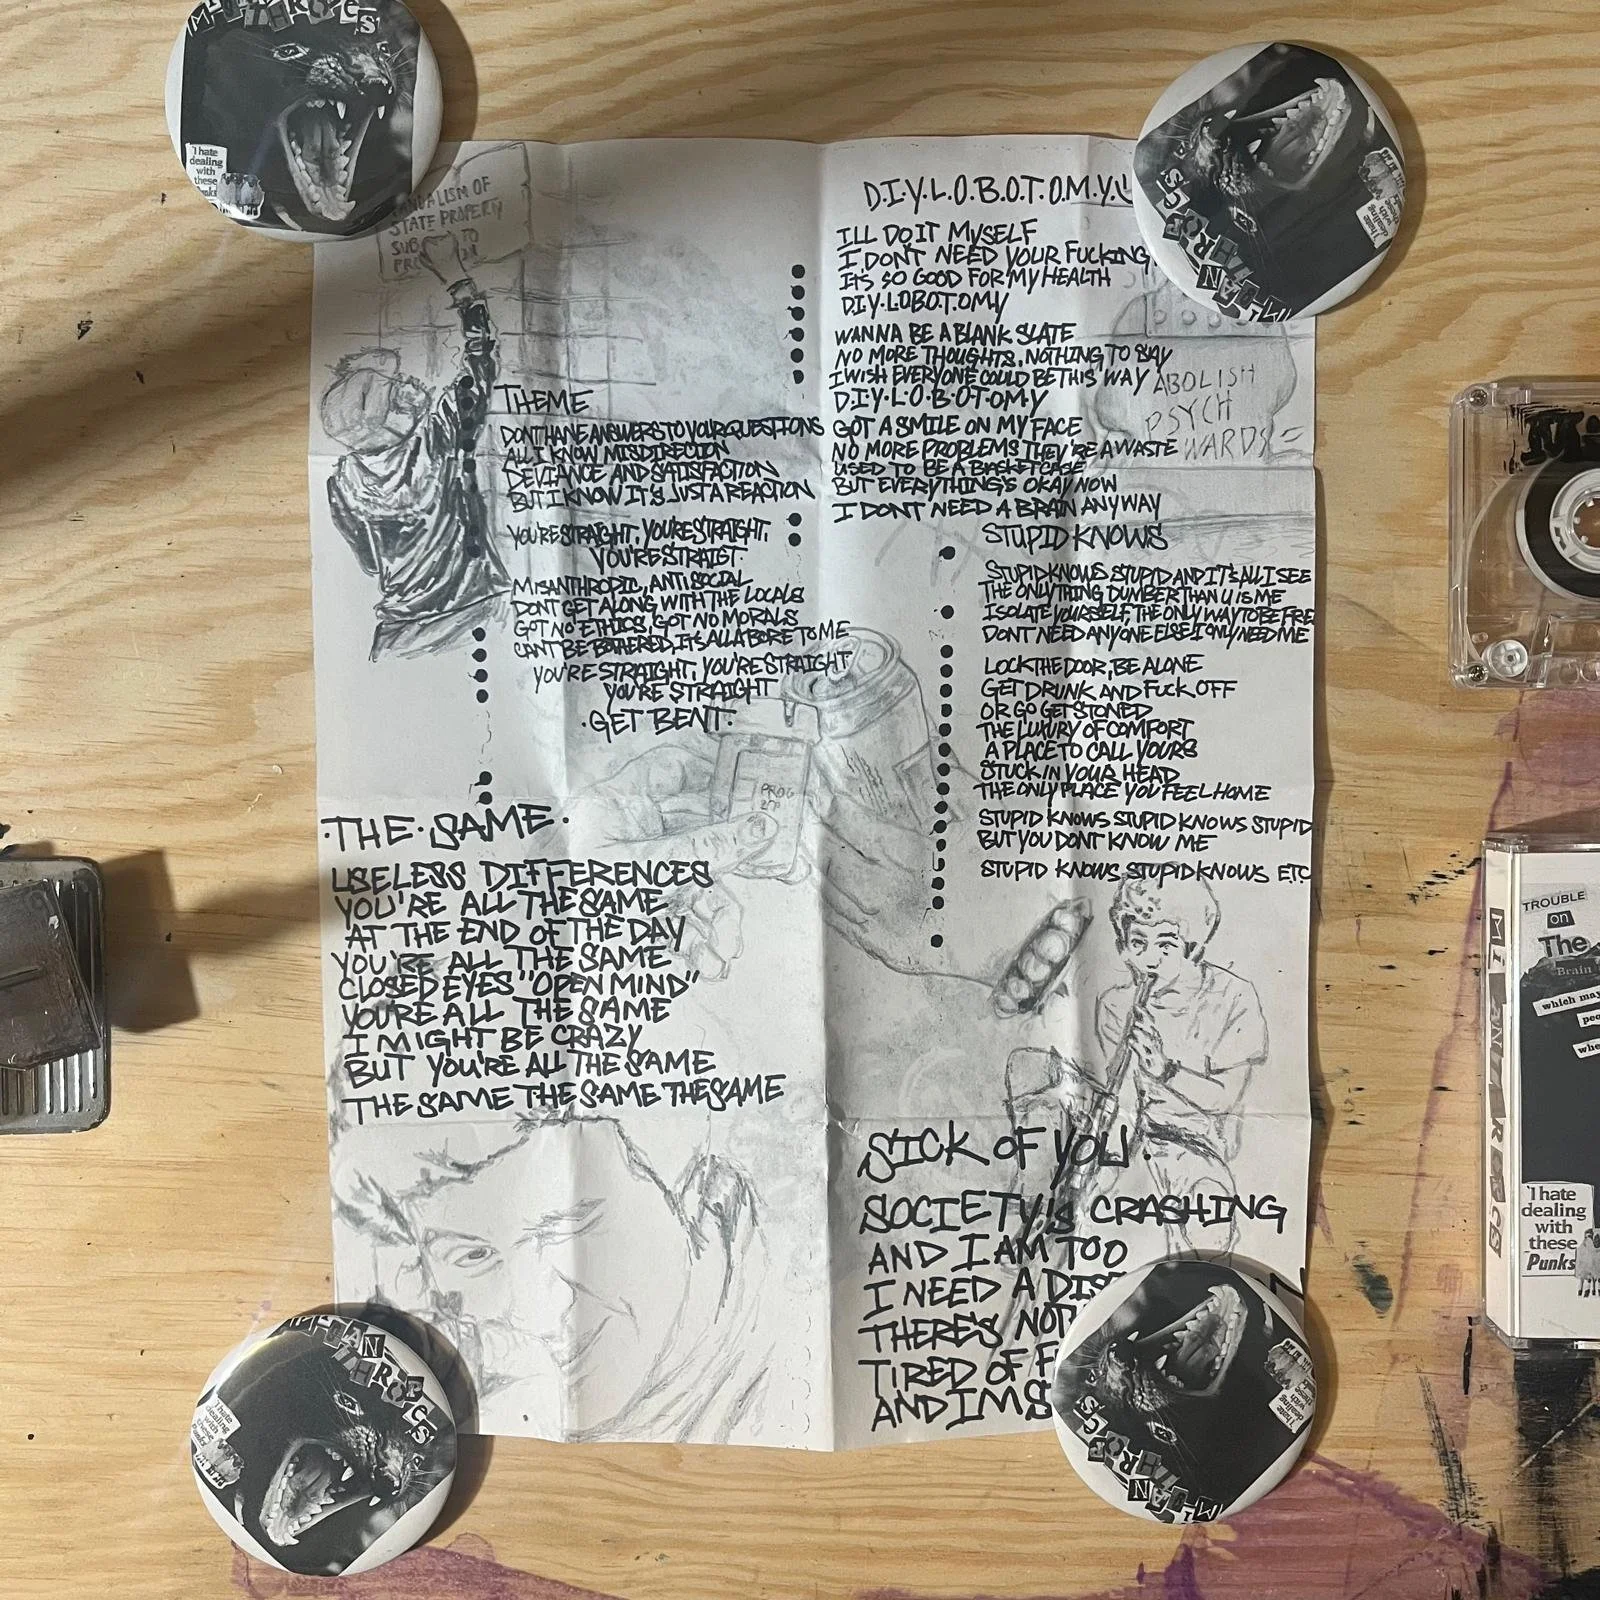 I hate
dealing
with
these
Punks
VANDALISM OF
STATE PROPERTY
SUB TO
THEME
DONT HAVE ANSWERS TO YOUR QUESTIONS
ALL I KNOW MISDIRECION
DEVIANCE AND SATISFACTION
BUT I KNOW IT'S JUST A REACTION
YOU'RE STRAIGHT, YOU'RE STRAIGHT,
YOU'RE STRAIGT
MISANTHROPIC, ANTISOCIAL
DONT GET ALONG WITH THE LOCALS
GOT NO ETHICS, GOT NO MORALS
CANT BE BOTHERED, ITS ALL A BORE TO ME
YOU'RE STRAIGHT, YOU'RE STRAIGHT
YOU'RE STRAIGHT
·GET BENT·
PROG
·THE·SAME·
USELESS DIFFERENCES
YOU'RE ALL THE SAME
AT THE END OF THE DAY
YOU'RE ALL THE SAME
CLOSED EYES "OPEN MIND"
YOU'RE ALL THE SAME
I MIGHT BE CRAZY
BUT YOU'RE ALL THE SAME
THE SAME THE SAME THE SAME
D.I.Y.L.O.B.O.T.O.M.Y.
ILL DO IT MYSELF
I DONT NEED YOUR FUCKING
IT'S SO GOOD FOR MY HEALTH
D.I.Y.LOBO.T.OMY
WANNA BE A BLANK SLATE
NO MORE THOUGHTS, NOTHING TO SAY
I WISH EVERYONE COULD BE THIS WAY
D·I·Y·L·O·B·O·T·O·MY
GOT A SMILE ON MY FACE
NO MORE PROBLEMS THEY'RE A WASTE
USED TO BE A BASKETCASE
BUT EVERYTHING'S OKAY NOW
I DONT NEED A BRAIN ANYWAY
ABOLISH
PSYCH
WARDS
STUPID KNOWS
STUPID KNOWS STUPID AND IT'S ALL I SEE
THE ONLY THING DUMBER THAN U IS ME
ISOLATE YOURSELF, THE ONLY WAY TO BE FREE
DONT NEED ANYONE ELSE I ONLY NEED ME
LOCK THE DOOR, BE ALONE
GET DRUNK AND FUCK OFF
OR GO GET STONED
THE LUXURY OF COMFORT
A PLACE TO CALL YOURS
STUCK IN YOUR HEAD
THE ONLY PLACE YOU FEEL HOME
STUPID KNOWS STUPID KNOWS STUPID
BUT YOU DONT KNOW ME
STUPID KNOWS STUPID KNOWS ETC
SICK OF YOU
SOCIETY'S CRASHING
AND I AM TOO
I NEED A
THERE'S
TIRED OF
AND IM
TROUBLE
on
The
Brain
which may
MI AN THROPES
I hate
dealing
with
these
Punks
MI-SAN
THROPES
I hate
dealing
with
these
Punks
MI-SAN
THROPES